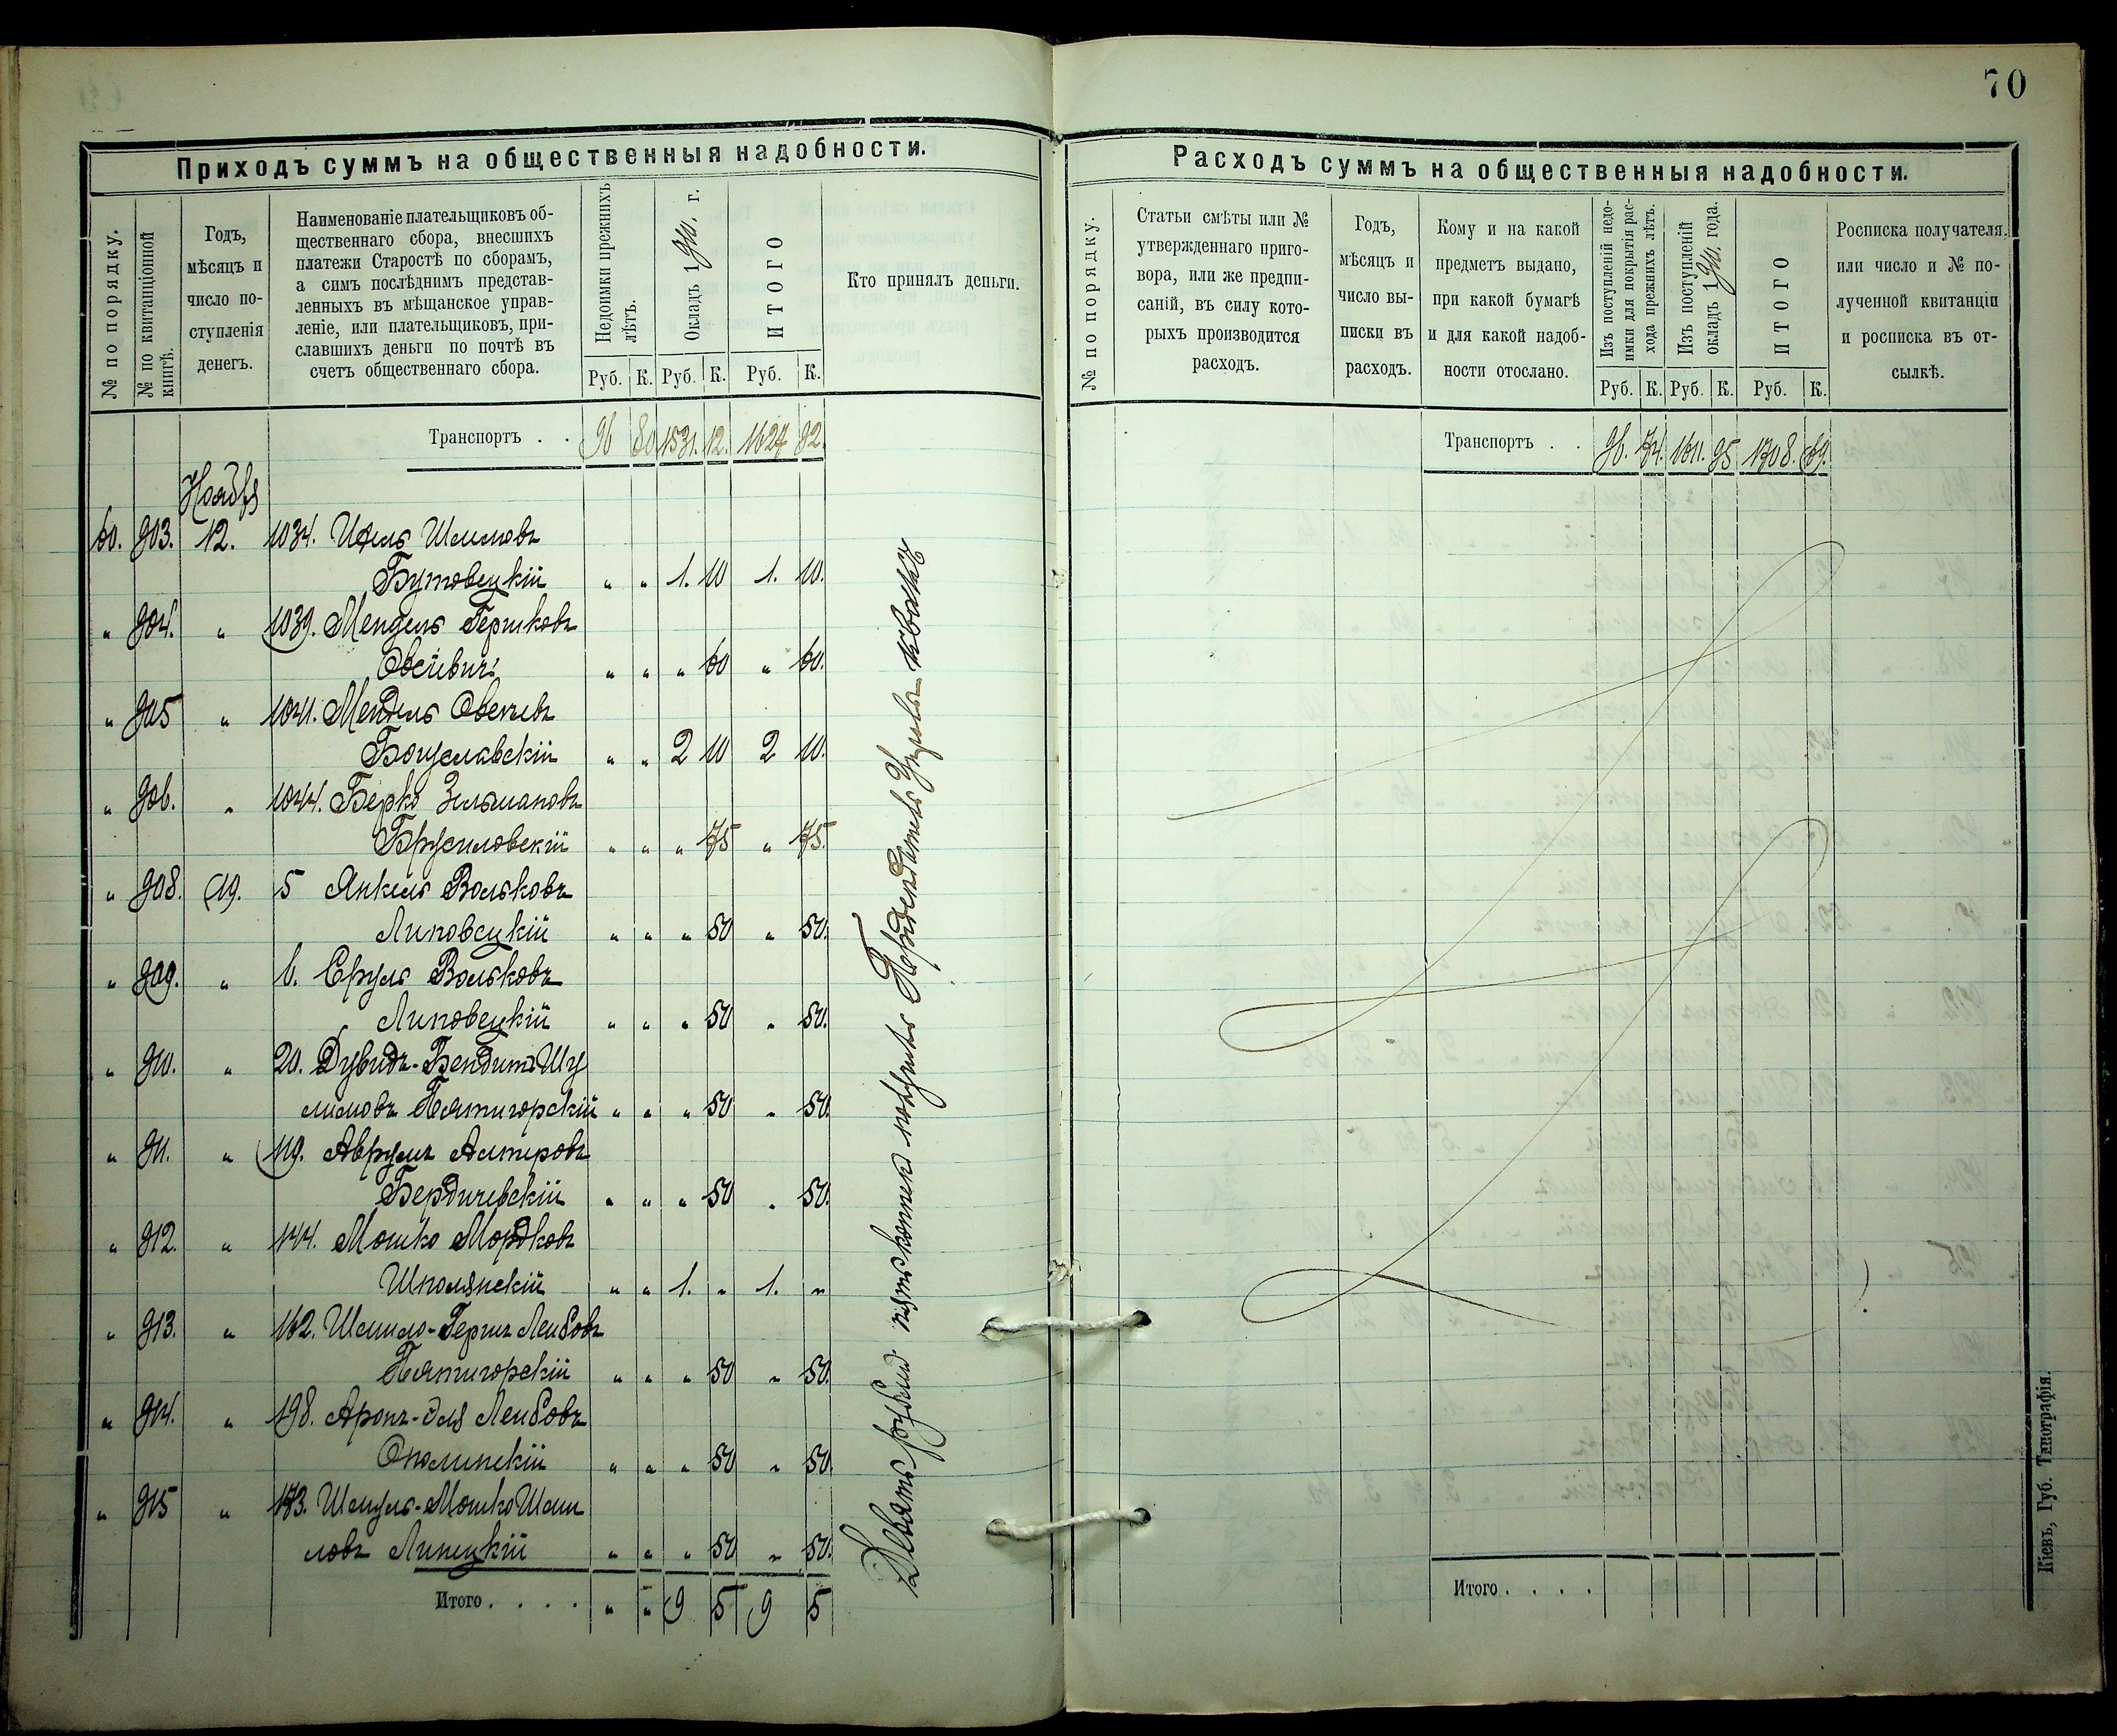 70
Приходъ суммъ на общественныя надобности.
№ по порядку.
№ по квитанціонной
книгѣ.
Годъ,
мѣсяцъ и
число по-
ступленія
денегъ.
Наименованіе плательщиковъ об-
щественнаго сбора, внесшихъ
платежи Старостѣ по сборамъ,
а симъ послѣднимъ представ-
ленныхъ въ мѣщанское управ-
леніе, или плательщиковъ, при-
славшихъ деньги по почтѣ въ
счетъ общественнаго сбора.
Недоимки прежнихъ
лѣтъ.
Окладъ 1910. г.
ИТОГО
Кто принялъ деньги.
Руб. К. Руб. К. Руб. К.
Транспортъ . . 96 80 1531. 12. 1627 92.
Ноября
60. 903. 12. 1034. Ицель Шмилевъ
Бутовецкій " " 1. 10 1. 10.
" 904. " 1039. Мендель Гершковъ
Овсіевичъ " " " 60 " 60.
" 905 " 1041. Мендель
Богуславскій " " 2 10 2 10.
" 906. " 1044. Берко Зельмановъ
Брусиловскій " " " 75 " 75.
" 908. 19. 5 Янкель Вольковъ
Липовецкій " " " 50 " 50.
" 909. " 6. Сруль Вольковъ
Липовецкій " " " 50 " 50.
" 910. " 20. Дувидъ-Бендитъ Шу
лимовъ Пятигорскій " " " 50 " 50.
" 911. " 119. Аврумъ Алтеровъ
Бердичевскій " " " 50 " 50.
" 912. " 144. Мошко Мордковъ
Шполянскій " " 1. " 1. "
" 913. " 162. Шмило-Гершъ Лейбовъ
Пятигорскій " " " 50 " 50.
" 914. " 198. Аронъ-Эля Лейбовъ
Ополинскій " " " 50 " 50.
" 915 " 173. Шмуль-Мошко Шми
ловъ Липецкій " " " 50 " 50.
Итого . . . . " " 9 5 9 5
Девять рублей пять копеекъ
Расходъ суммъ на общественныя надобности.
№ по порядку.
Статьи смѣты или №
утвержденнаго приго-
вора, или же предпи-
саній, въ силу кото-
рыхъ производится
расходъ.
Годъ,
мѣсяцъ и
число вы-
писки въ
расходъ.
Кому и на какой
предметъ выдано,
при какой бумагѣ
и для какой надоб-
ности отослано.
Изъ поступленій недо-
имки для покрытія рас-
хода прежнихъ лѣтъ.
Изъ поступленій
окладъ 1910. года.
ИТОГО
Росписка получателя.
или число и № по-
лученной квитанціи
и росписка въ от-
сылкѣ.
Руб. К. Руб. К. Руб. К.
Транспортъ . . 96. 74. 1611. 95 1708. 69.
Итого . . . .
Кіевъ, Губ. Типографія.